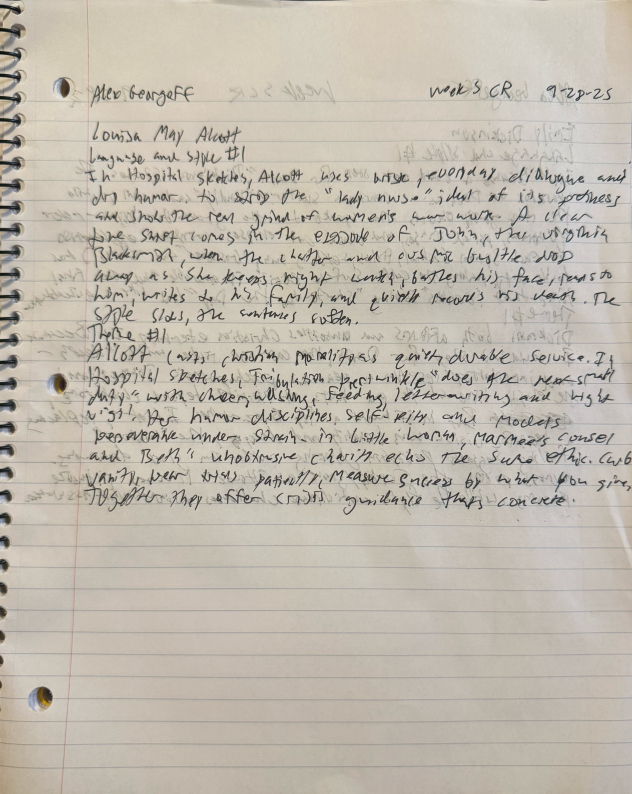 Alex Georgeff week 5 CR 9-28-25
Louisa May Alcott
Language and style #1
In Hospital Sketches, Alcott uses brisk, everyday dialogue and
dry humor to strip the "lady nurse" ideal of its prettiness
and show the real grind of women's war work. A clear
tone shift comes in the episode of John, the Virginia
Blacksmith, when the chatter and comic bustle drop
away as she keeps night watch, bathes his face, reads to
him, writes to his family, and quietly records his death. The
style slows, the sentences soften.
Theme #1
Alcott casts christian morality as quiet, durable service. In
Hospital Sketches, Tribulation periwinkle "does the next small
duty" with cheer, washing, feeding, letter-writing and night
vigil. Her humor disciplines self-pity and models
perseverance under strain. in Little Women, Marmee's counsel
and Beth's unobtrusive charity echo the same ethic. Curb
vanity, bear trials patiently, measure success by what you give,
Together they offer crisis guidance thats concrete.